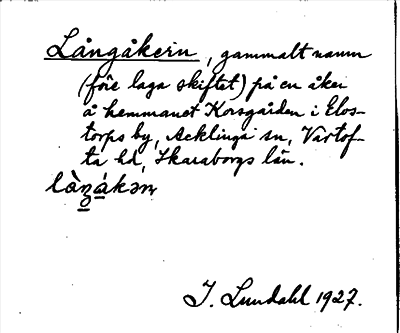 Långåkern, gammalt namn
(före laga skiftet) på en åker
å hemmanet Korsgården i Elos-
torps by, Acklinga sn, Vartof-
ta hd, Skaraborgs län.
I. Lundahl 1927.